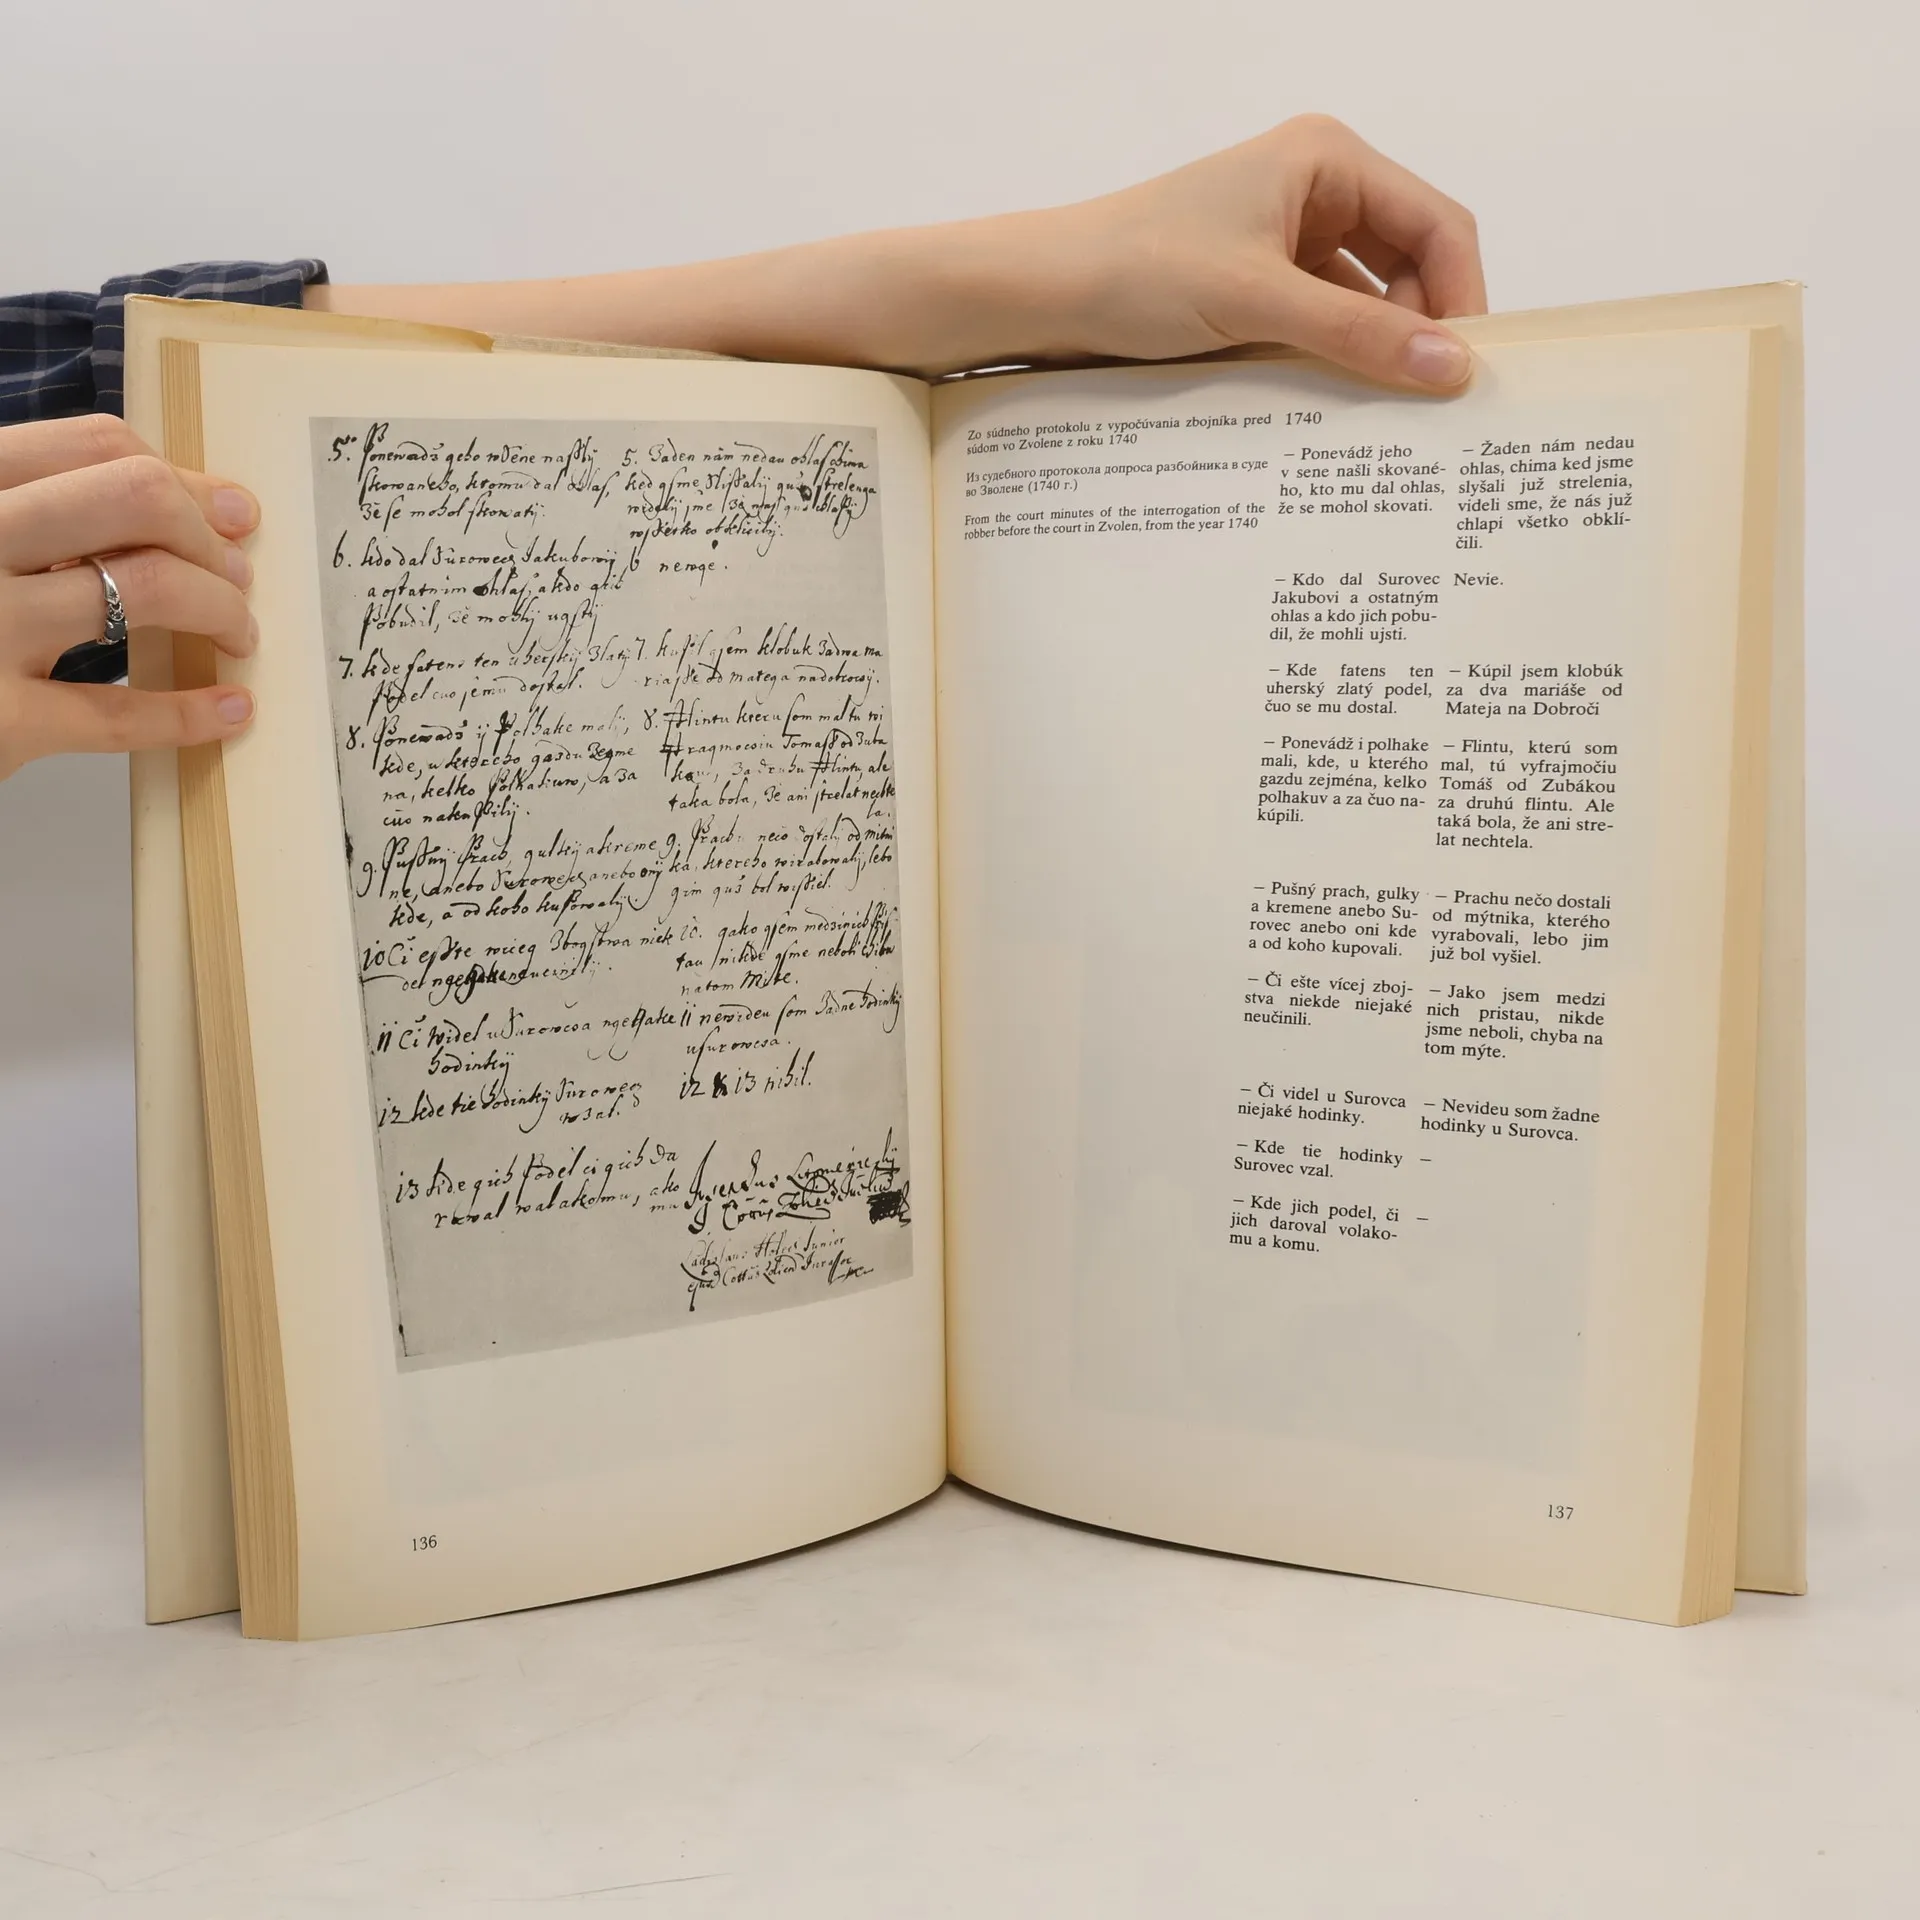 5. Ponewadž geho wSene nassly
skowaneho, kromu dal ohlas,
že se mohol skowaty.
5. Žaden nám nedau ohlas chima
ked gsme Slissaly guž strelenga
widely sme že nas guž chlapy
wssetko obklicily.
6. kdo dal Surowecz Jakubowy
a ostatnim ohlas, a kdo gich
Pobudil, že mohly ugsty
6 newge.
7. kde fatens ten uhersky zlaty
Podel cuo jemu dostal.
7. kupil gsem klobuk žadwa ma
riasse od matega nadobrocy.
8. Ponewadž y Polhake maly,
kde, u ktereho gazdu Zegme
na, kelko Polhakuw, a za
cuo nakupily.
8. Flintu kteru som mal tu wi
fragmociu Tomass od Zuba
kou, za druhu Flintu, ale
taka bola, že ani strelat nechte
la.
9. Pussny Prach, gulky a kreme
ne, anebo Surowecz anebo ony
kde, a od koho kupowaly.
9. Prachu neco dostaly od mitni
ka, ktereho wirabowaly, lebo
gim guž bol wissiel.
10 Či esste wiceg zbogstwa niek
de neucinily.
10. gako gsem medzi nich pris
tau nikde gsme neboli chiba
natom Mite.
11 Či widel u Surowcza ngegake
hodinky
11 newideu som žadne hodinky
u surowcza.
12 kde tie hodinky Surowecz
wzal.
12 & 13 nihil.
13 kde gich Podel ci gich da
rowal walakomu, ako
mu
Ladislaus Junior
136
Zo súdneho protokolu z vypočúvania zbojníka pred
súdom vo Zvolene z roku 1740
Из судебного протокола допроса разбойника в суде
во Зволене (1740 г.)
From the court minutes of the interrogation of the
robber before the court in Zvolen, from the year 1740
1740
– Ponevádž jeho
v sene našli skované-
ho, kto mu dal ohlas,
že se mohol skovati.
– Žaden nám nedau
ohlas, chima ked jsme
slyšali juž strelenia,
videli sme, že nás juž
chlapi všetko obklí-
čili.
– Kdo dal Surovec
Jakubovi a ostatným
ohlas a kdo jich pobu-
dil, že mohli ujsti.
Nevie.
– Kde fatens ten
uherský zlatý podel,
čuo se mu dostal.
– Kúpil jsem klobúk
za dva mariáše od
Mateja na Dobroči
– Ponevádž i polhake
mali, kde, u kterého
gazdu zejména, kelko
polhakuv a za čuo na-
kúpili.
– Flintu, kterú som
mal, tú vyfrajmočiu
Tomáš od Zubákou
za druhú flintu. Ale
taká bola, že ani stre-
lat nechtela.
– Pušný prach, gulky
a kremene anebo Su-
rovec anebo oni kde
a od koho kupovali.
– Prachu nečo dostali
od mýtnika, kterého
vyrabovali, lebo jim
již bol vyšiel.
– Či ešte vícej zboj-
stva niekde niejaké
neučinili.
– Jako jsem medzi
nich pristau, nikde
jsme neboli, chyba na
tom mýte.
– Či videl u Surovca
niejaké hodinky.
– Nevideu som žadne
hodinky u Surovca.
– Kde tie hodinky
Surovec vzal.
–
– Kde jich podel, či
jich daroval volako-
mu a komu.
–
137